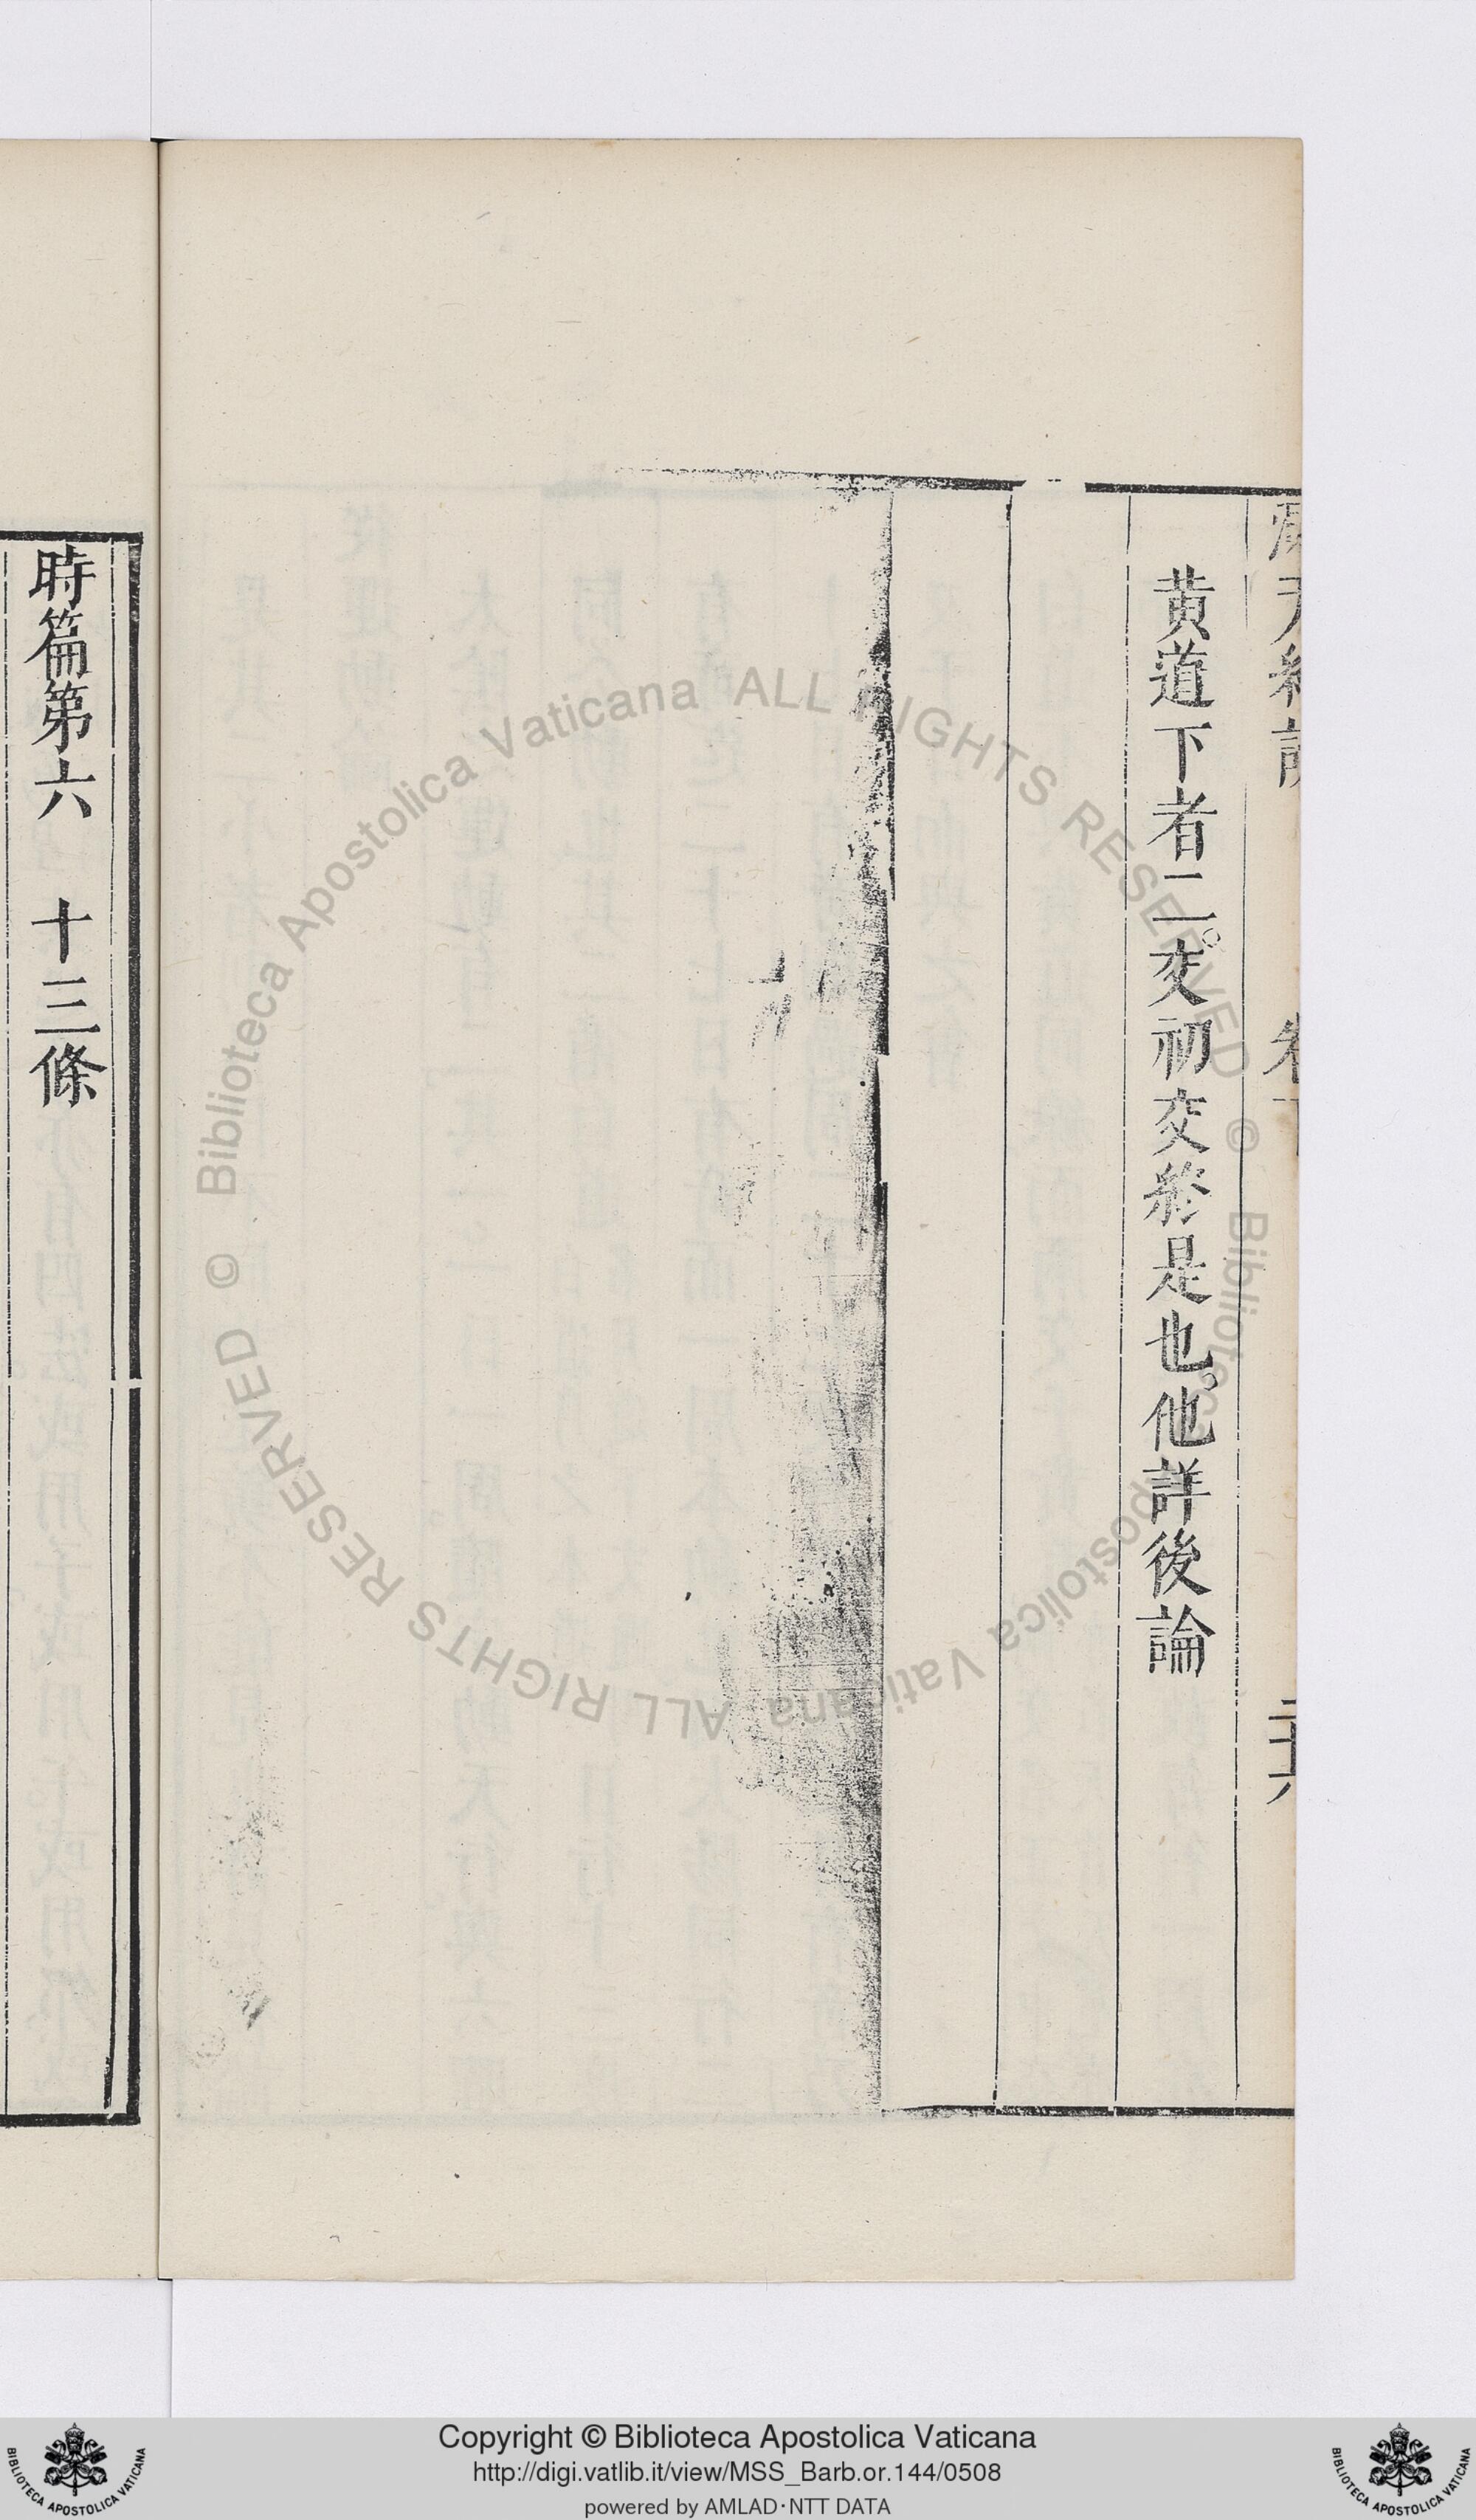 黄道下者二。交初交終是也。他詳後論
時篇第六　十三條
Biblioteca Apostolica Vaticana ALL RIGHTS RESERVED © Biblioteca Apostolica Vaticana ALL RIGHTS RESERVED ©
Copyright © Biblioteca Apostolica Vaticana
http://digi.vatlib.it/view/MSS_Barb.or.144/0508
powered by AMLAD·NTT DATA
BIBLIOTECA APOSTOLICA VATICANA
BIBLIOTECA APOSTOLICA VATICANA